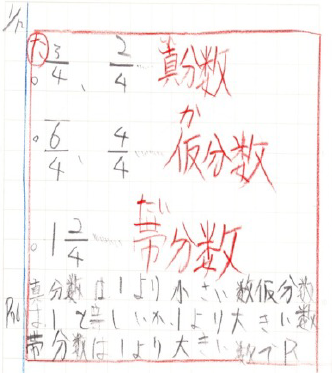 1/12
大 3/4、 2/4 … 真分数
か
6/4、 4/4 … 仮分数
たい
1 2/4 … 帯分数
真分数は1より小さい数仮分数
は1と等しいか、1より大きい数
帯分数は1より大きい数でR